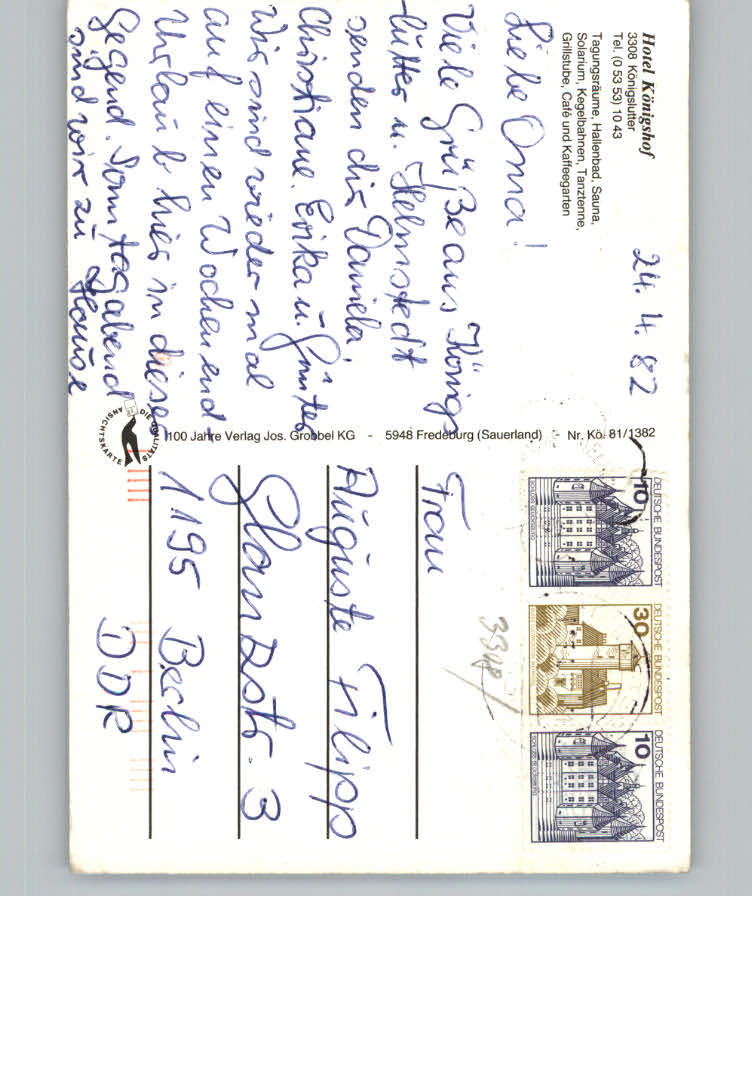 Hotel Königshof
3308 Königslutter
Tel. (0 53 53) 10 43
Tagungsräume, Hallenbad, Sauna,
Solarium, Kegelbahnen, Tanztenne,
Grillstube, Café und Kaffeegarten
24. 4. 82
Liebe Oma!
Viele Grüße aus Königs
-lutter u. Helmstedt
senden dir Daniela,
Christiane. Erika u. Günter
Wir sind wieder mal
auf einen Wochenend-
Urlaub hier in dieser
Gegend. Sonntagabend
sind wir zu Hause
DIE QUALITÄTS
ANSICHTSKARTE
100 Jahre Verlag Jos. Grobbel KG - 5948 Fredeburg (Sauerland) - Nr. Kö. 81/1382
DEUTSCHE BUNDESPOST
10
DEUTSCHE BUNDESPOST
30
DEUTSCHE BUNDESPOST
10
3348
Frau
Auguste Filipp
Glanzstr. 3
1195 Berlin
DDR